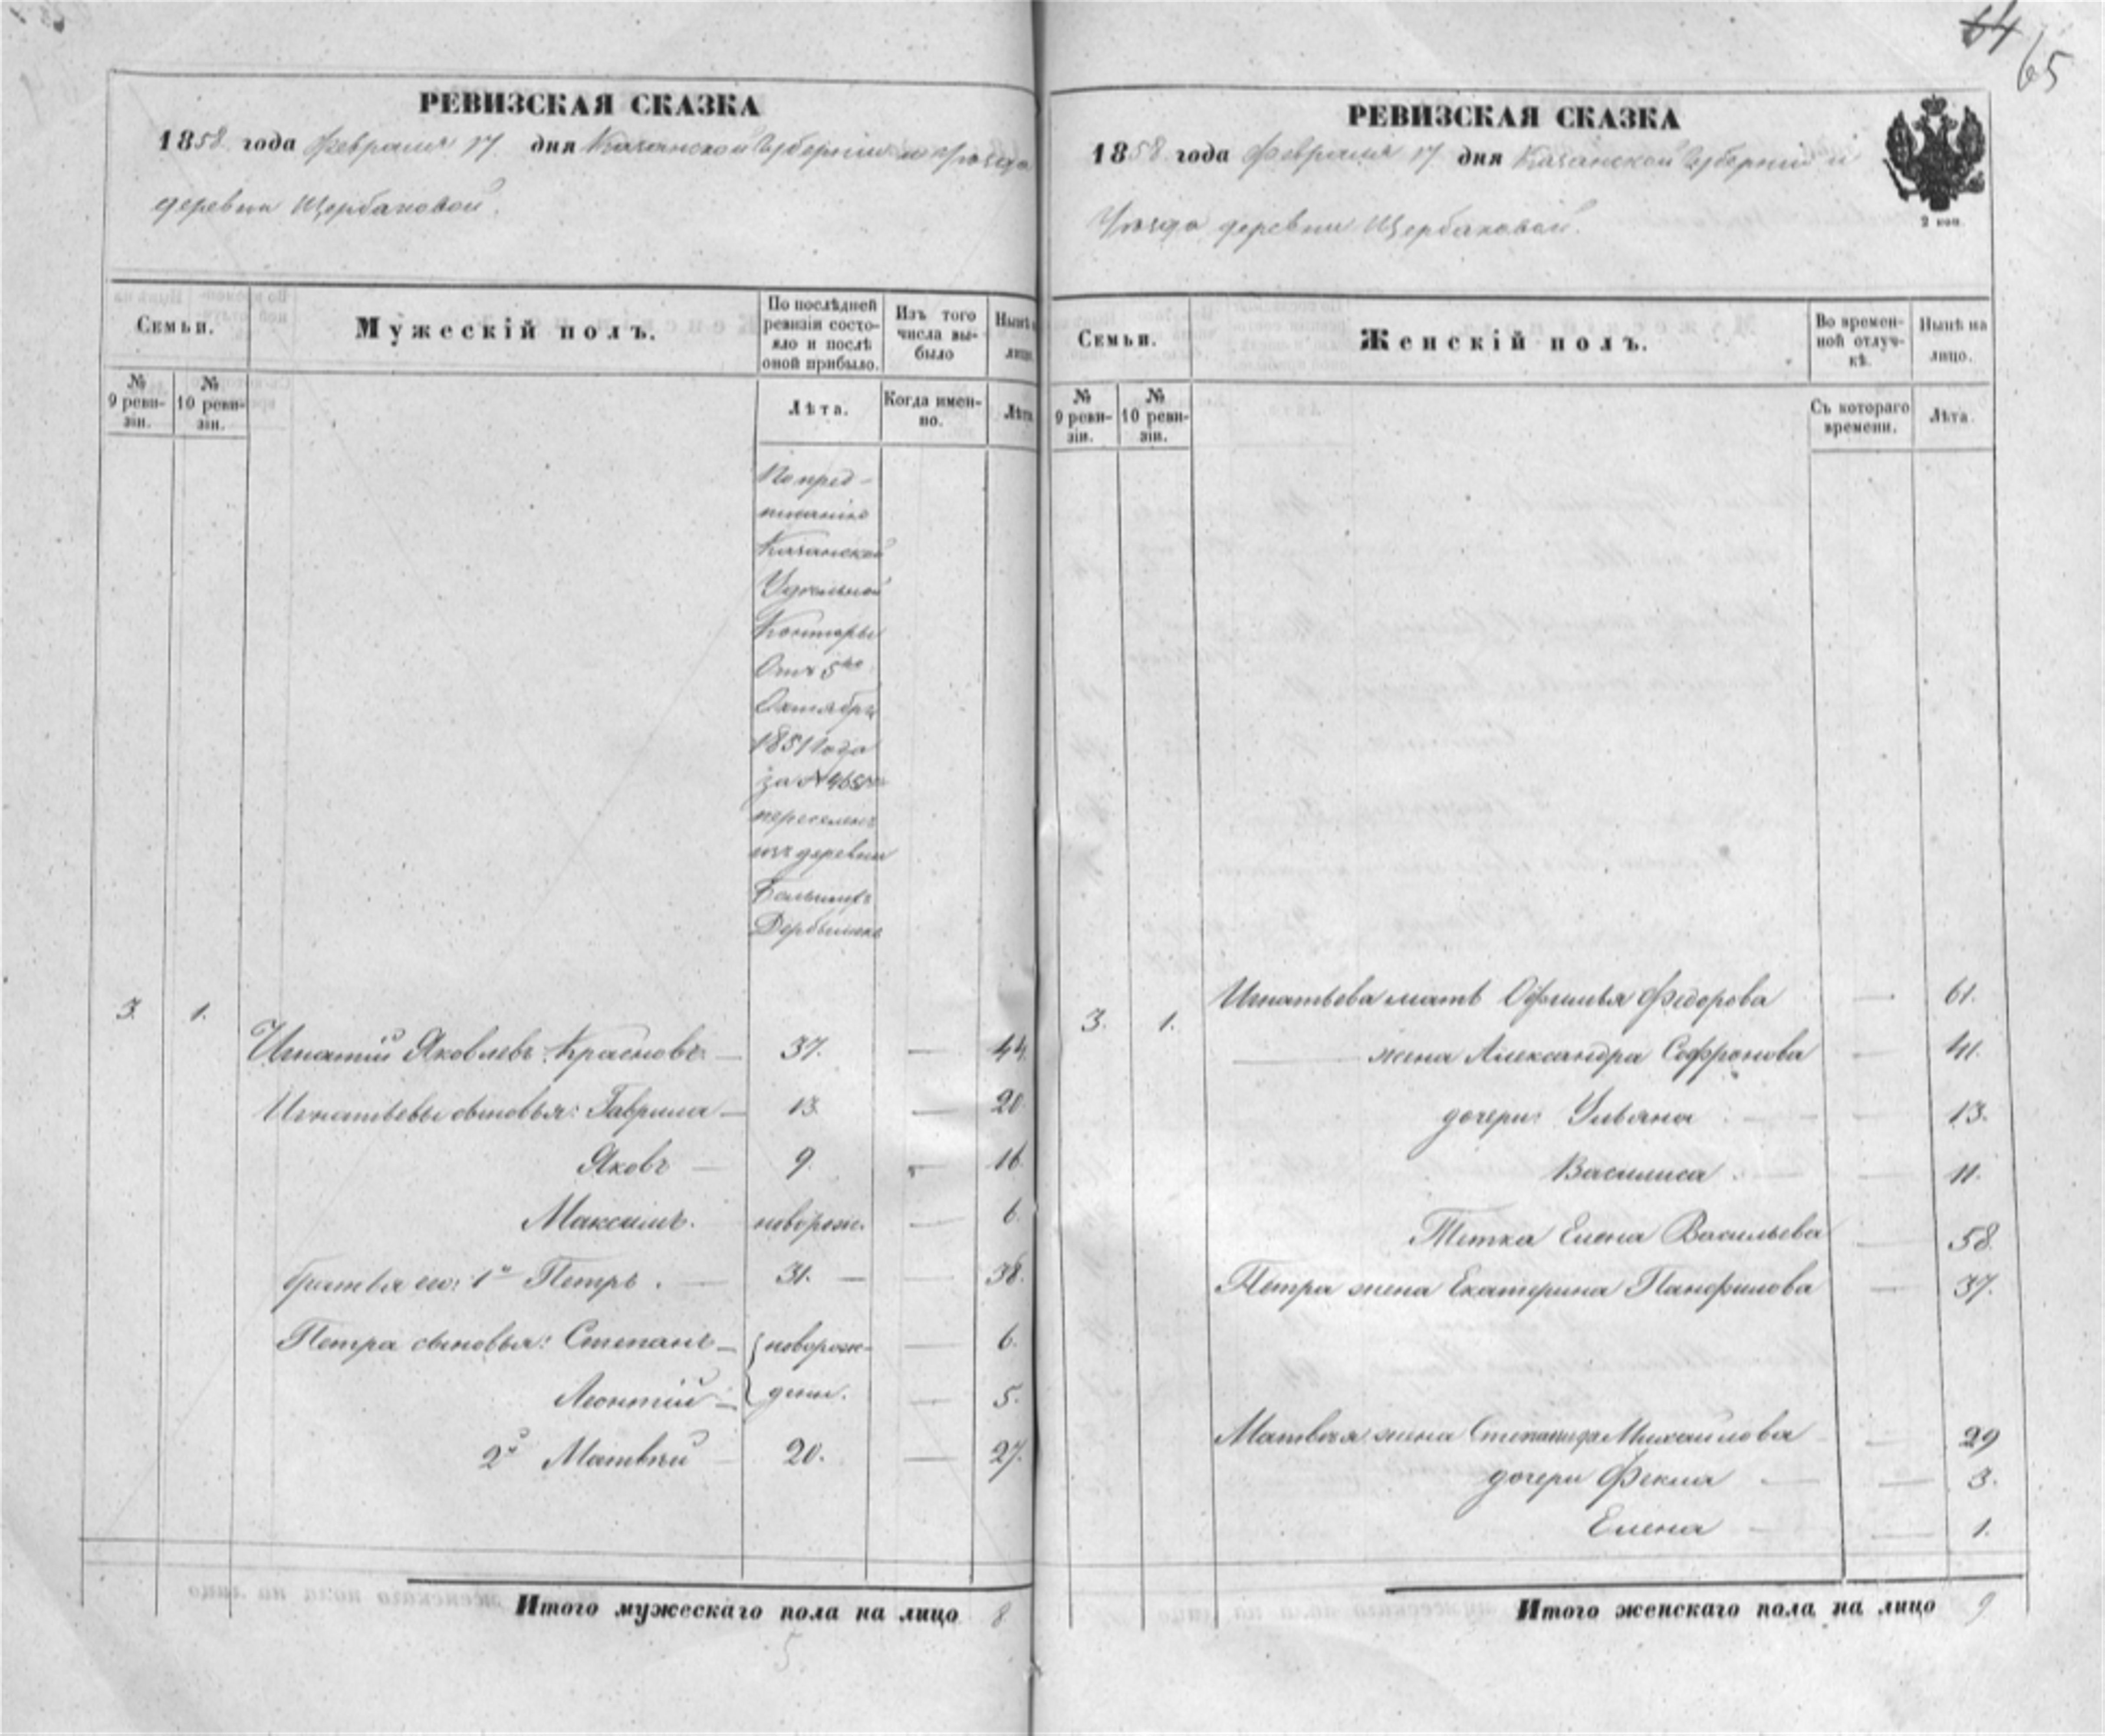 64
65
РЕВИЗСКАЯ СКАЗКА
1858 года Февраля 17 дня Казанской Губернии и Уѣзда
деревни Щербаковой.
Семьи.
Мужескій полъ.
По послѣдней ревизіи состояло и послѣ оной прибыло.
Изъ того числа выбыло
Нынѣ на лицо.
№ 9 ревизіи.
№ 10 ревизіи.
Лѣта.
Когда именно.
Лѣта
По пред-
писанію
Казанской
Удѣльной
Конторы
Отъ 5го
Октября
1851 года
за №
переселенъ
изъ деревни
Дербышекъ
3. 1.
Игнатій Яковлевъ Красновъ — 37. — 44.
Игнатьевы сыновья: Гаврила — 13 — 20.
Яковъ — 9. — 16.
Максимъ. новорож. — 6.
братья его: 1й Петръ. — 31. — — 38.
Петра сыновья: Степанъ — новорож- — 6.
Леонтій — дены. — 5.
2й Матвѣй — 20. — 27.
Итого мужескаго пола на лицо 8
5
РЕВИЗСКАЯ СКАЗКА
1858 года Февраля 17 дня Казанской Губерніи и
Уѣзда деревни Щербаковой.
2 коп.
Семьи.
Женскій полъ.
Во временной отлучкѣ.
Нынѣ на лицо.
№ 9 ревизіи.
№ 10 ревизіи.
Съ котораго времени.
Лѣта.
3. 1.
Игнатьева мать Офимья Федорова — 61.
— жена Александра Софронова — 41.
дочери: Ульяна — 13.
Василиса — 11.
Тетка Елена Васильева — 58.
Петра жена Екатерина Панфилова — 37.
Матвея жена Степанида Михайлова — 29
дочери Фекла — 3.
Елена — 1.
Итого женскаго пола на лицо 9